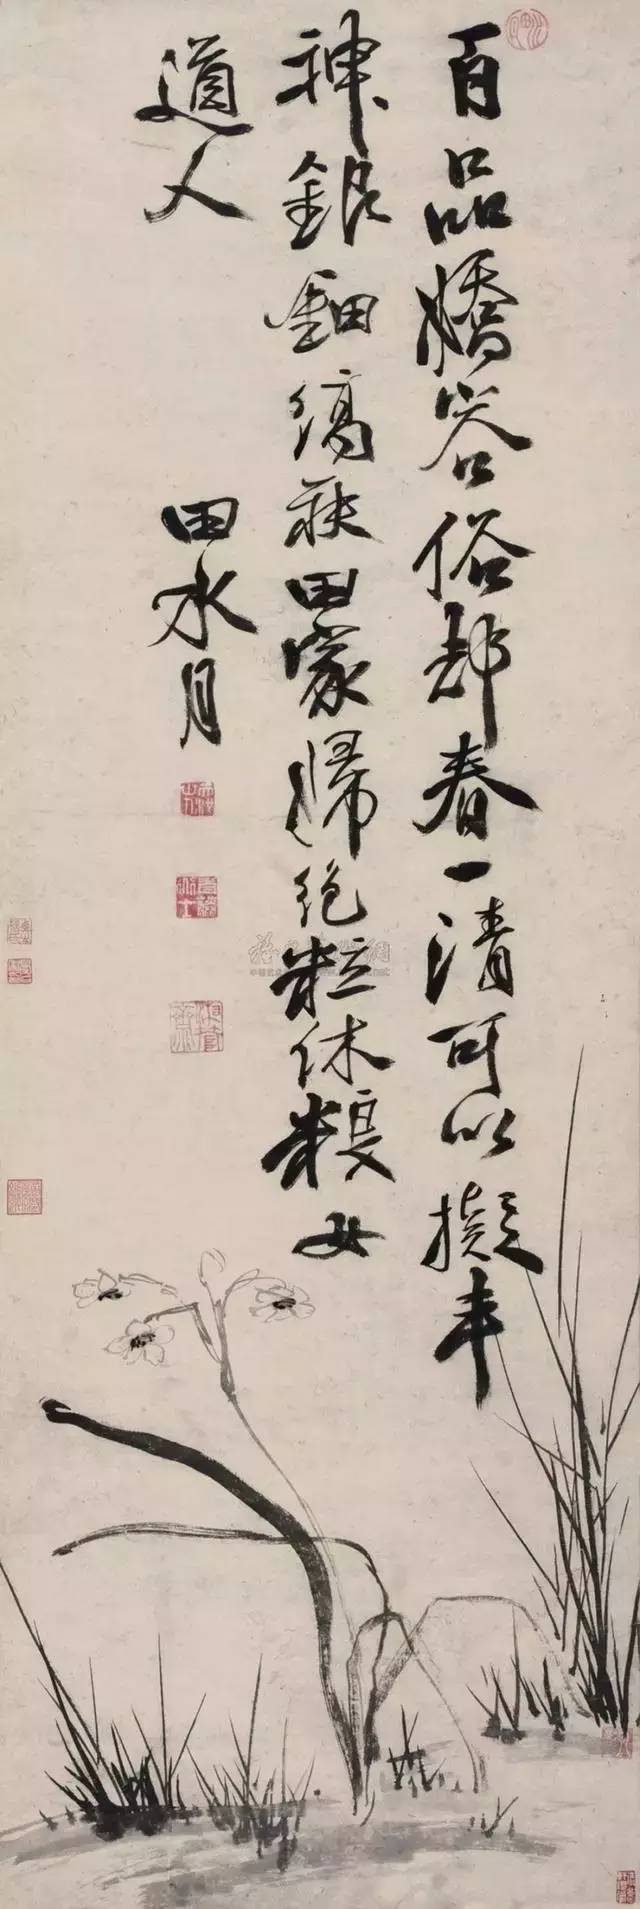 百品嬌容俗却春一清可以擬丰
神銀鈿縞袂田家婦絶粒休糧女
道人
田水月